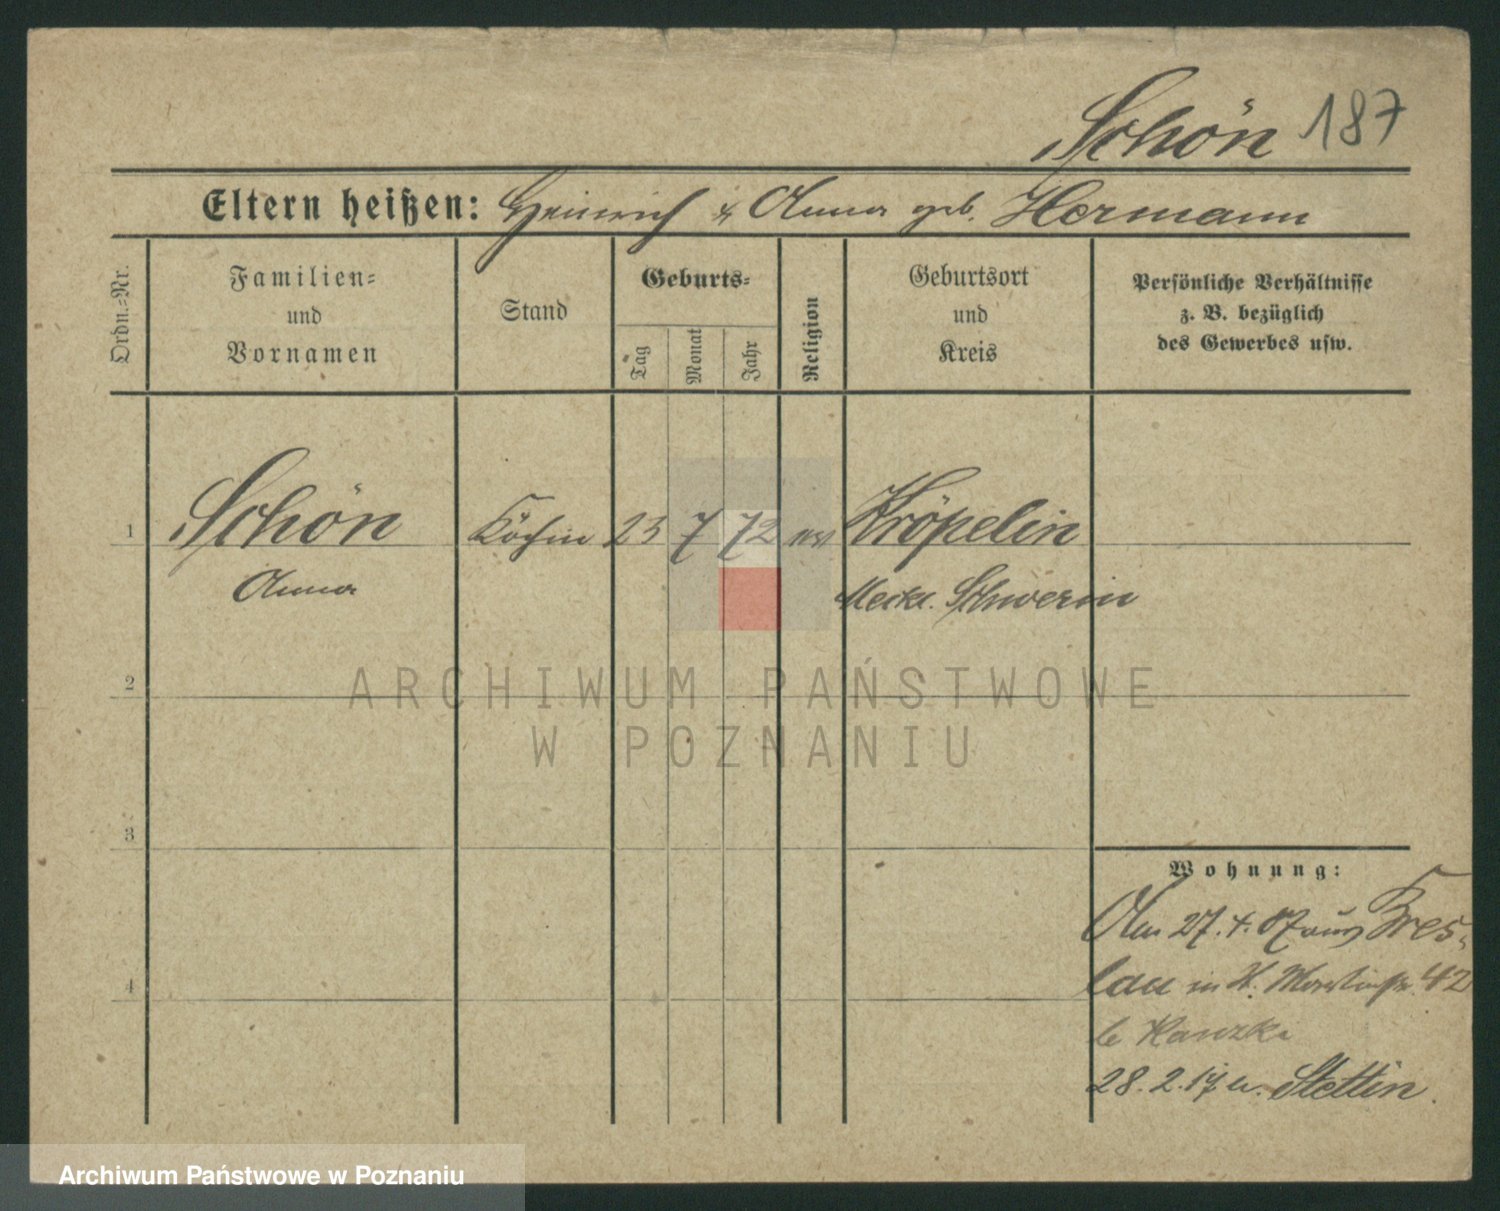 Schön 187
Eltern heißen: Heinrich & Anna geb. Hermann
Ordn.-Nr.
Familien-
und
Vornamen
Stand
Geburts-
Tag
Monat
Jahr
Religion
Geburtsort
und
Kreis
Persönliche Verhältnisse
z. B. bezüglich
des Gewerbes usw.
1 Schön Köchin 23 7 72 Kröpelin
Anna Meckl. Schwerin
2
ARCHIWUM PAŃSTWOWE
W POZNANIU
3
Wohnung:
27. Bres-
4
lau in Martinstr. 42
28. 2. Stettin.
Archiwum Państwowe w Poznaniu